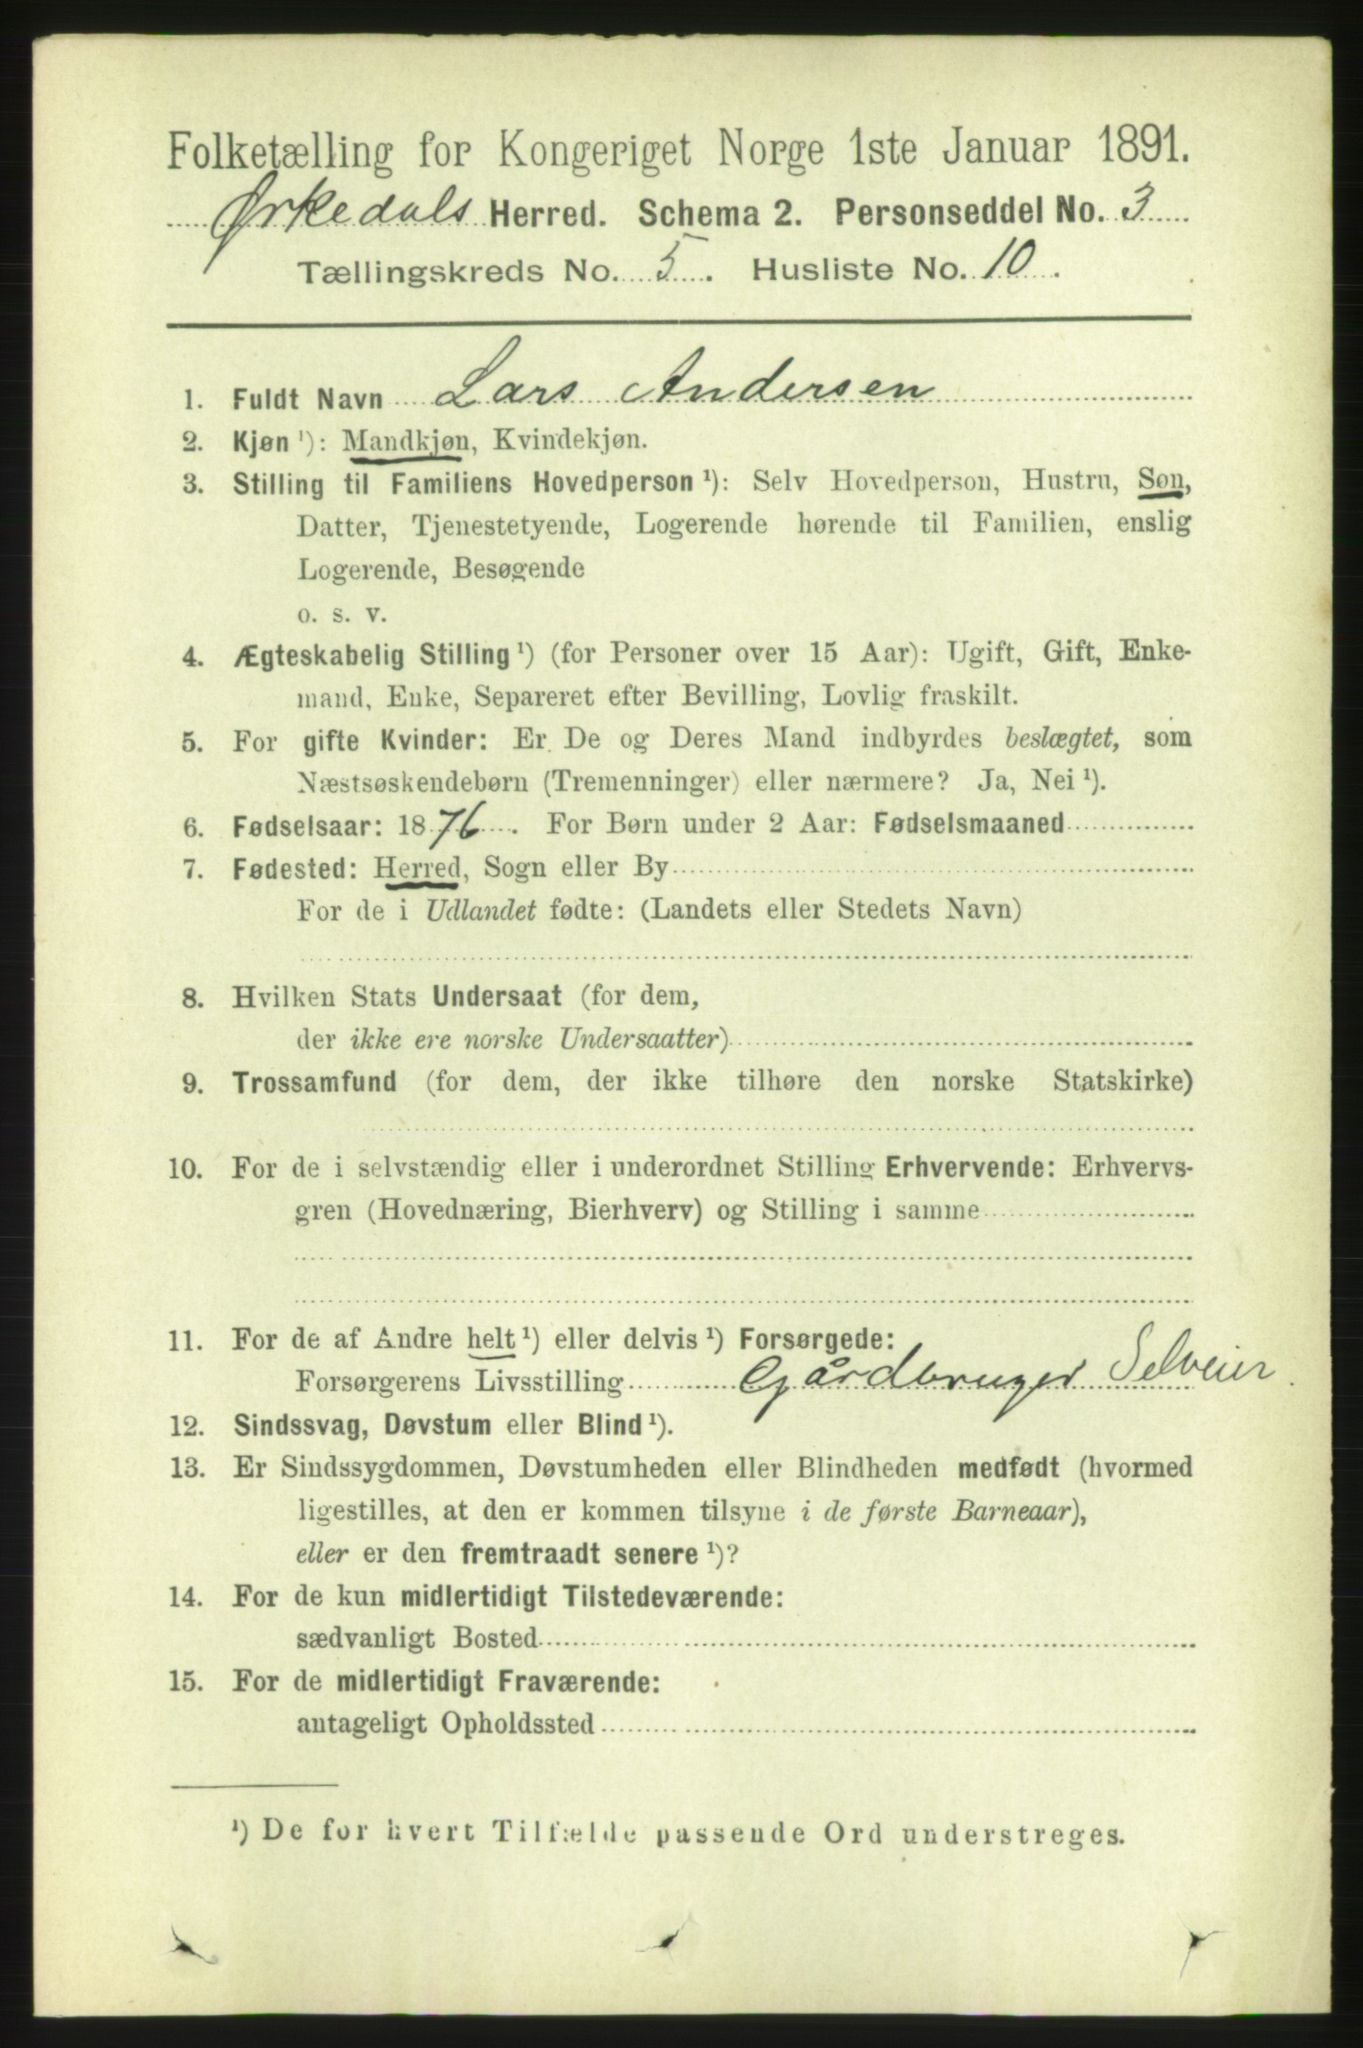 Folketælling for Kongeriget Norge 1ste Januar 1891.
Ørkedals Herred. Schema 2. Personseddel No. 3
Tællingskreds No. 5. Husliste No. 10.
1. Fuldt Navn Lars Andersen
2. Kjøn ¹): Mandkjøn, Kvindekjøn.
3. Stilling til Familiens Hovedperson ¹): Selv Hovedperson, Hustru, Søn,
Datter, Tjenestetyende, Logerende hørende til Familien, enslig
Logerende, Besøgende
o. s. v.
4. Ægteskabelig Stilling ¹) (for Personer over 15 Aar): Ugift, Gift, Enke-
mand, Enke, Separeret efter Bevilling, Lovlig fraskilt.
5. For gifte Kvinder: Er De og Deres Mand indbyrdes beslægtet, som
Næstsøskendebørn (Tremenninger) eller nærmere? Ja, Nei ¹).
6. Fødselsaar: 1876. For Børn under 2 Aar: Fødselsmaaned
7. Fødested: Herred, Sogn eller By
For de i Udlandet fødte: (Landets eller Stedets Navn)
8. Hvilken Stats Undersaat (for dem,
der ikke ere norske Undersaatter)
9. Trossamfund (for dem, der ikke tilhøre den norske Statskirke)
10. For de i selvstændig eller i underordnet Stilling Erhvervende: Erhvervs-
gren (Hovednæring, Bierhverv) og Stilling i samme
11. For de af Andre helt ¹) eller delvis ¹) Forsørgede:
Forsørgerens Livsstilling Gårdbruger Selveier
12. Sindssvag, Døvstum eller Blind ¹).
13. Er Sindssygdommen, Døvstumheden eller Blindheden medfødt (hvormed
ligestilles, at den er kommen tilsyne i de første Barneaar),
eller er den fremtraadt senere ¹)?
14. For de kun midlertidigt Tilstedeværende:
sædvanligt Bosted
15. For de midlertidigt Fraværende:
antageligt Opholdssted
¹) De for hvert Tilfælde passende Ord understreges.